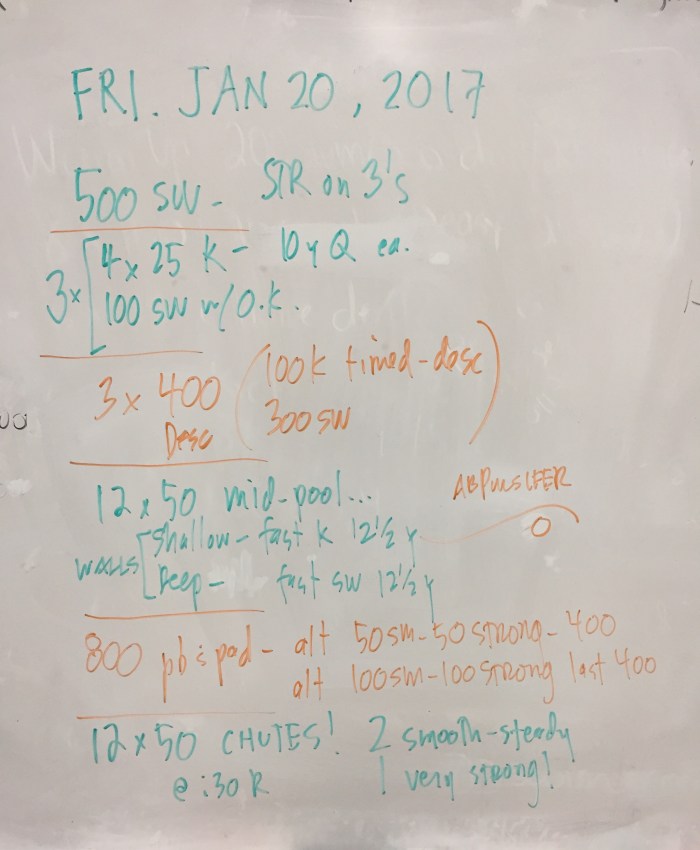 FRI. JAN 20, 2017
500 SW - STR on 3's
3x [4 x 25 K - 10 y Q ea.
100 SW w/ O.K.
3 x 400 (100 K timed-desc
Desc 300 SW)
12 x 50 mid-pool...
WALLS [Shallow - fast K 12 1/2 y
Deep - fast SW 12 1/2 y
800 pb & pad - alt 50 sm - 50 strong - 400
alt 100 sm - 100 strong last 400
12 x 50 CHUTES! 2 smooth-steady
@ :30 R 1 very strong!